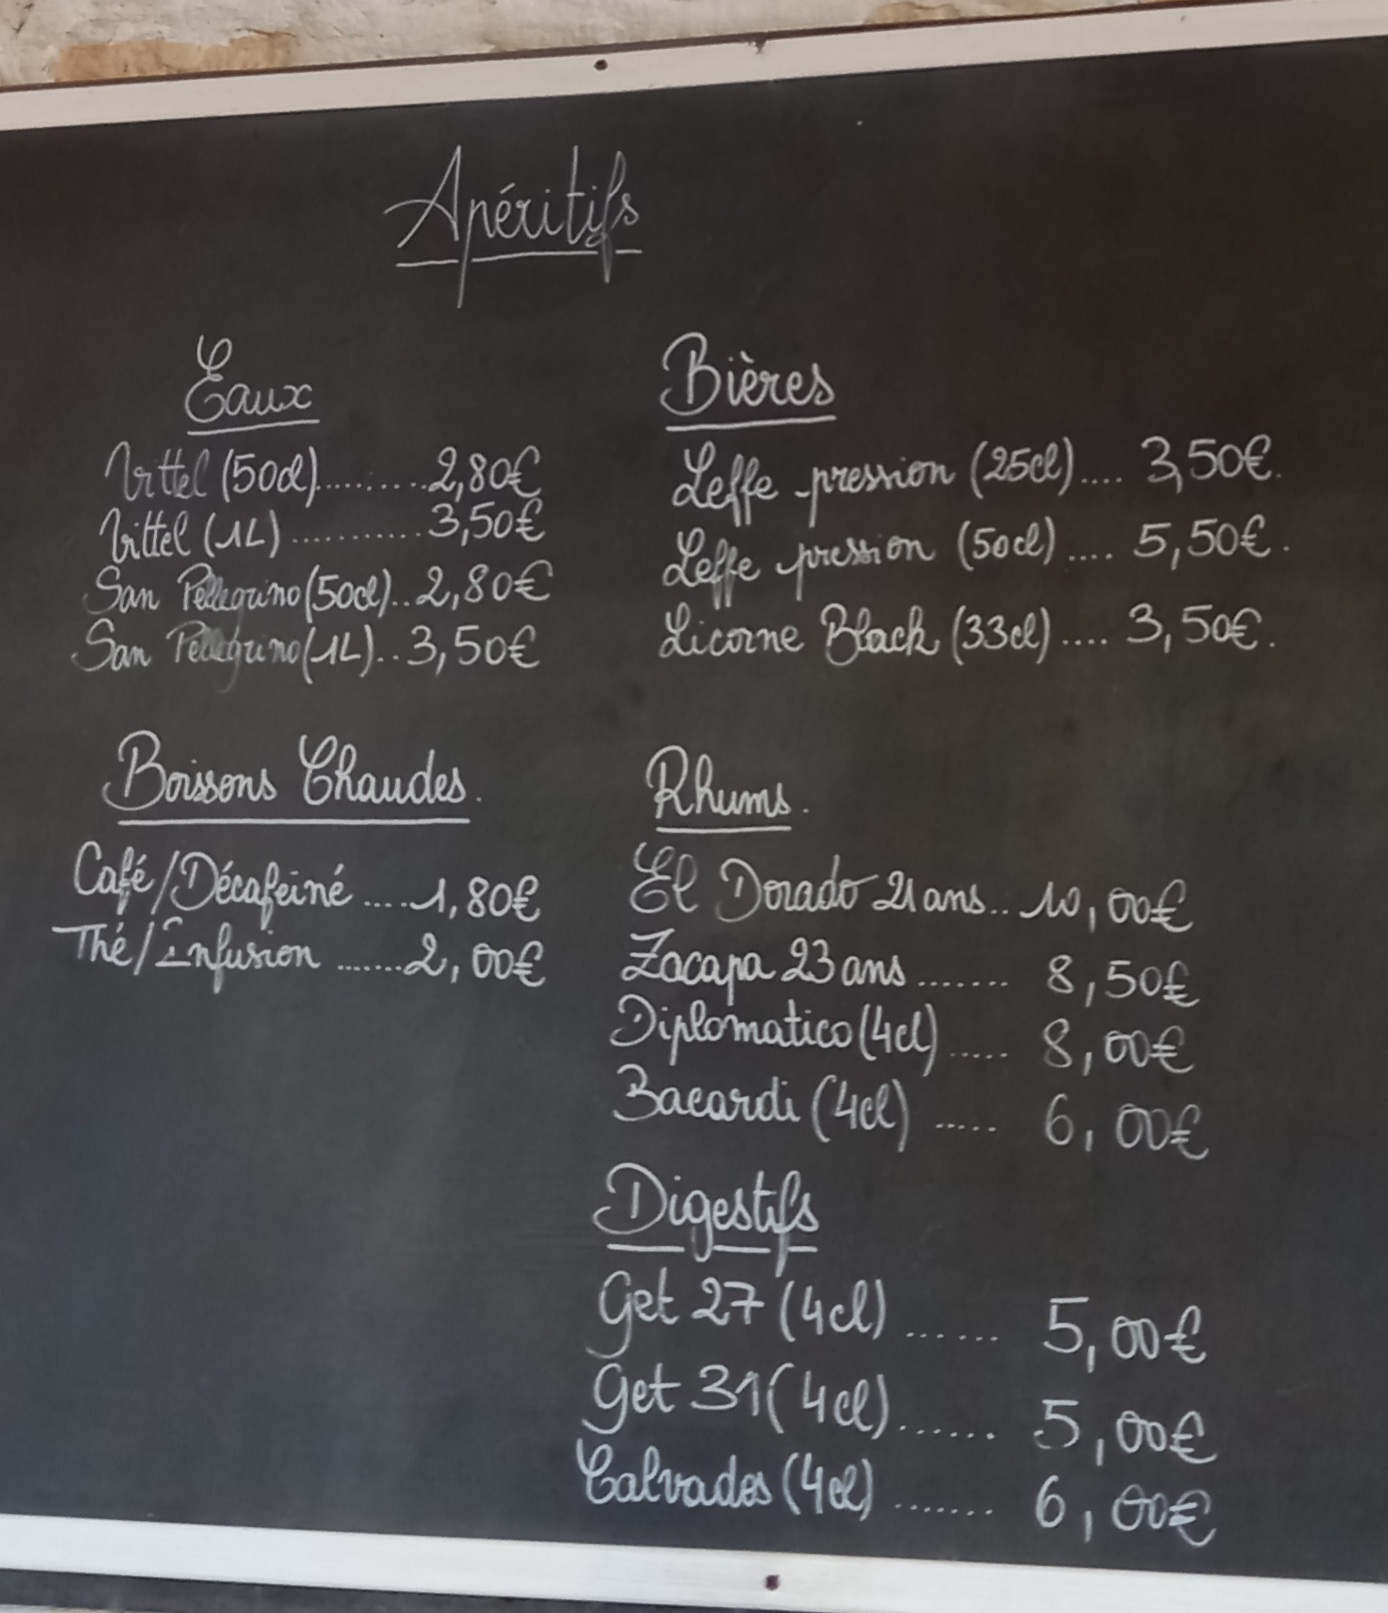 Apéritifs
Eaux
Vittel (50cl).......... 2,80€
Vittel (1L) ........... 3,50€
San Pellegrino (50cl).. 2,80€
San Pellegrino (1L)... 3,50€
Bières
Leffe pression (25cl).... 3,50€.
Leffe pression (50cl).... 5,50€.
Licorne Black (33cl).... 3,50€.
Boissons Chaudes.
Café/Décafeiné .....1,80€
Thé/Infusion .......2,00€
Rhums.
El Dorado 21 ans... 10,00€
Zacapa 23 ans ....... 8,50€
Diplomatico (4cl) ..... 8,00€
Bacardi (4cl) ..... 6,00€
Digestifs
Get 27 (4cl) ...... 5,00€
Get 31 (4cl)....... 5,00€
Calvados (4cl) ....... 6,00€